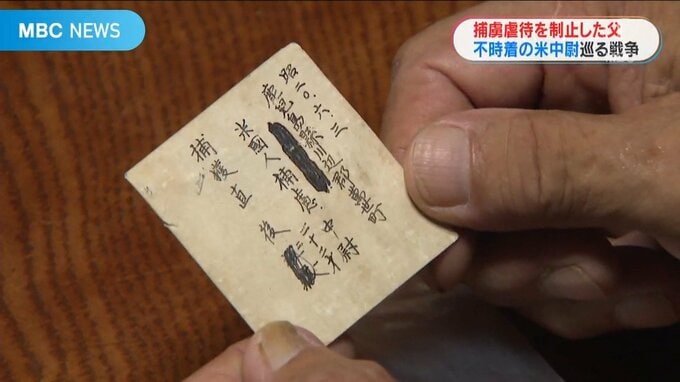 MBC NEWS
捕虜虐待を制止した父
不時着の米中尉巡る戦争
昭二〇.六.三
鹿児島縣川辺郡萬世町
米國人捕虜 中尉
二十二才
捕獲直後